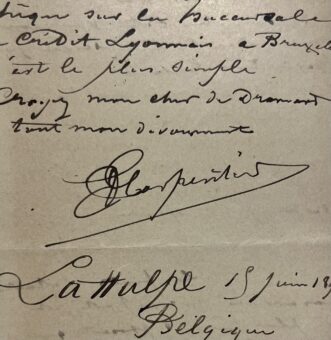 sur la succursale
Crédit Lyonnais à Bruxel
c'est le plus simple
Croyez mon cher de Dramard
tout mon dévouement
Carpentier
La Hulpe 15 juin 18
Belgique